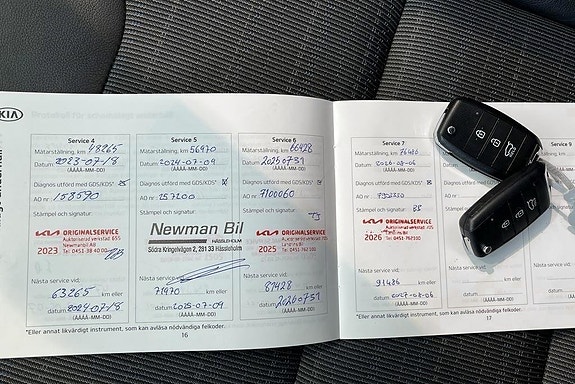 KIA
Service 4
Mätarställning, km 48265
Datum: 2023-07-18
(ÅÅÅÅ-MM-DD)
Diagnos utförd med GDS/KDS*
AO nr 158590
Stämpel och signatur:
KIA ORIGINALSERVICE
Auktoriserad verkstad 855
2023 Newmanbil AB
Tel 0451-38 40 00
Nästa service vid:
63265 km eller
datum 2024-07-18
(ÅÅÅÅ-MM-DD)
Service 5
Mätarställning, km 56970
Datum: 2024-07-09
(ÅÅÅÅ-MM-DD)
Diagnos utförd med GDS/KDS*
AO nr 257200
Stämpel och signatur:
Newman Bil
HÄSSLEHOLM
Södra Kringelvägen 2, 281 33 Hässleholm
Nästa service vid:
71970 km eller
datum 2025-07-09
(ÅÅÅÅ-MM-DD)
Service 6
Mätarställning, km 66428
Datum: 20250731
(ÅÅÅÅ-MM-DD)
Diagnos utförd med GDS/KDS*
AO nr 7100060
Stämpel och signatur:
KIA ORIGINALSERVICE
2025
Tel 0451-762 100
Nästa service vid:
81428 km eller
datum 20260731
(ÅÅÅÅ-MM-DD)
*Eller annat likvärdigt instrument, som kan avläsa nödvändiga felkoder.
16
Service 7
Mätarställning, km 76486
Datum: 2026-08-06
(ÅÅÅÅ-MM-DD)
Diagnos utförd med GDS/KDS*
AO nr
Stämpel och signatur:
KIA ORIGINALSERVICE
2026
Tel 0451-762100
Nästa service vid:
91486 km eller
datum 2027-08-06
(ÅÅÅÅ-MM-DD)
*Eller annat likvärdigt instrument, som kan avläsa nödvändiga felkoder.
17